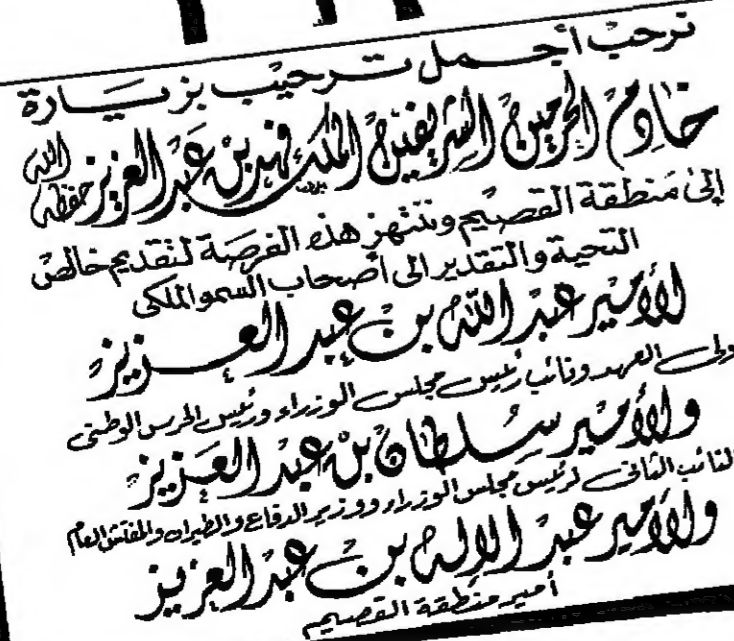 نرحب أجمل ترحيب بزيارة
خادم الحرمين الشريفين الملك فهد بن عبد العزيز حفظه الله
إلى منطقة القصيم وننتهز هذه الفرصة لنقديم خالص
التحية والتقدير الى أصحاب السمو الملكى
لأمير عبد الله بن عبد العزيز
ولى العهد ونائب رئيس مجلس الوزراء ورئيس الحرس الوطنى
والأمير سلطان بن عبد العزيز
النائب الثانى لرئيس مجلس الوزراء ووزير الدفاع والطيران والمفتش العام
والأمير عبد الإله بن عبد العزيز
أمير منطقة القصيم